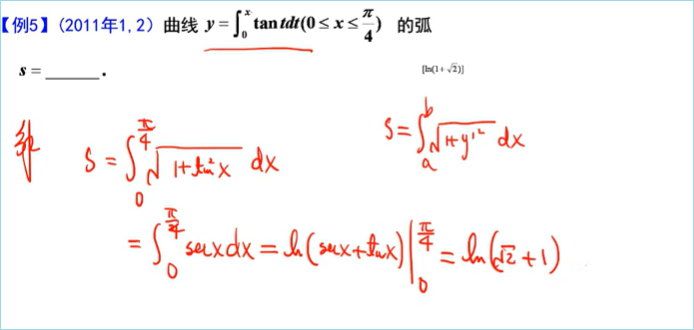 【例5】(2011年1,2) 曲线 y=∫₀ˣ tan tdt(0≤x≤π/4) 的弧
s=______.
[ln(1+√2)]
解 s=∫₀^(π/4) √(1+tan²x) dx
s=∫ₐᵇ √(1+y'²) dx
=∫₀^(π/4) secxdx=ln(secx+tanx)|₀^(π/4)=ln(√2+1)